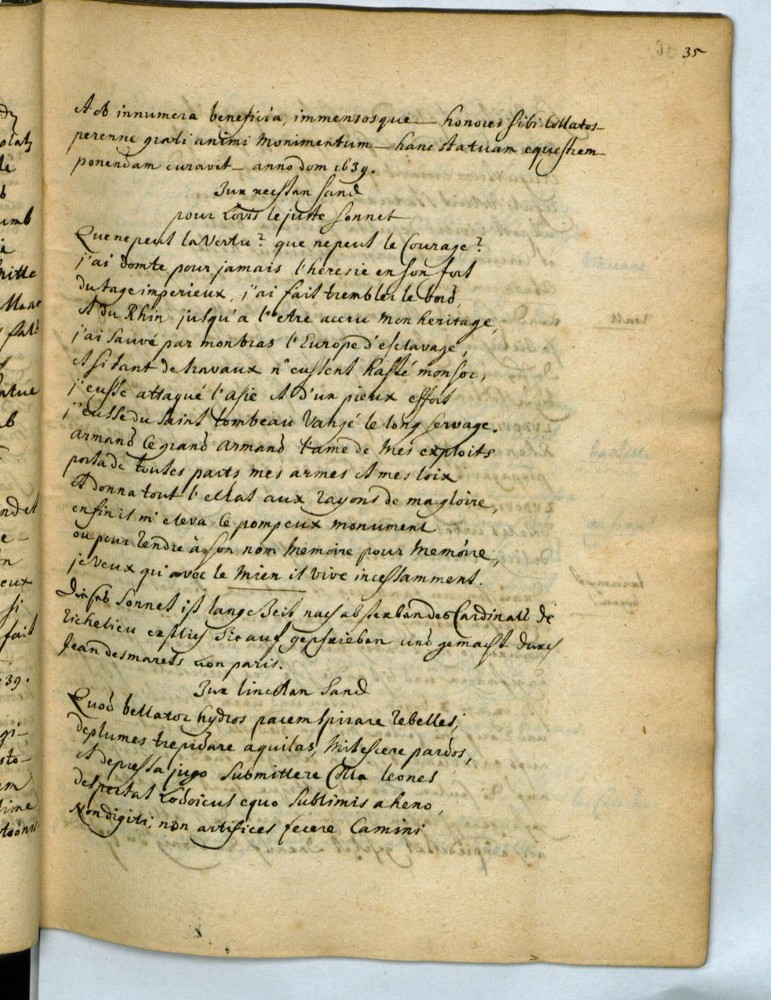 35
et ob innumera beneficia, immensosque honores sibi collatos
perenne grati animi monimentum hanc statuam equestrem
ponendam curavit anno dom 1639.
Zur rechten Hand
pour Lovis le juste Sonnet
Que ne peut la Vertu? que ne peut le Courage?
j'ai domte pour jamais l'heresie en son fort
du tage imperieux, j'ai fait trembler le bord,
et du Rhin jusqu'a l'ebre accru mon heritage,
j'ai sauvé par mon bras l'Europe d'esclavage,
et si tant de travaux n'eussent hasté mon sort,
j'eusse attaqué l'asie et d'un pieux effort
j'eusse du saint tombeau vangé le long servage.
armand le grand armand l'ame de mes exploits
porta de toutes parts mes armes et mes loix
et donna tout l'esclat aux rayons de ma gloire,
enfin il m'eleva ce pompeux monument
ou pour rendre à son nom memoire pour memoire,
je veux qu'avec le mien il vive incessamment.
Dieses Sonnet ist lange Zeit nach absterben des Cardinals de
Richelieu erstlich hierauf geschrieben und gemacht durch
Jean desmarets von paris.
Zur lincken Hand
Quod bellator hydros pacem spirare rebelles,
deplumes trepidare aquilas, mitescere pardos,
et depressa jugo submittere colla leones
despectat Lodoicus equo sublimis aheno,
Non digiti, non artifices fecere Camini